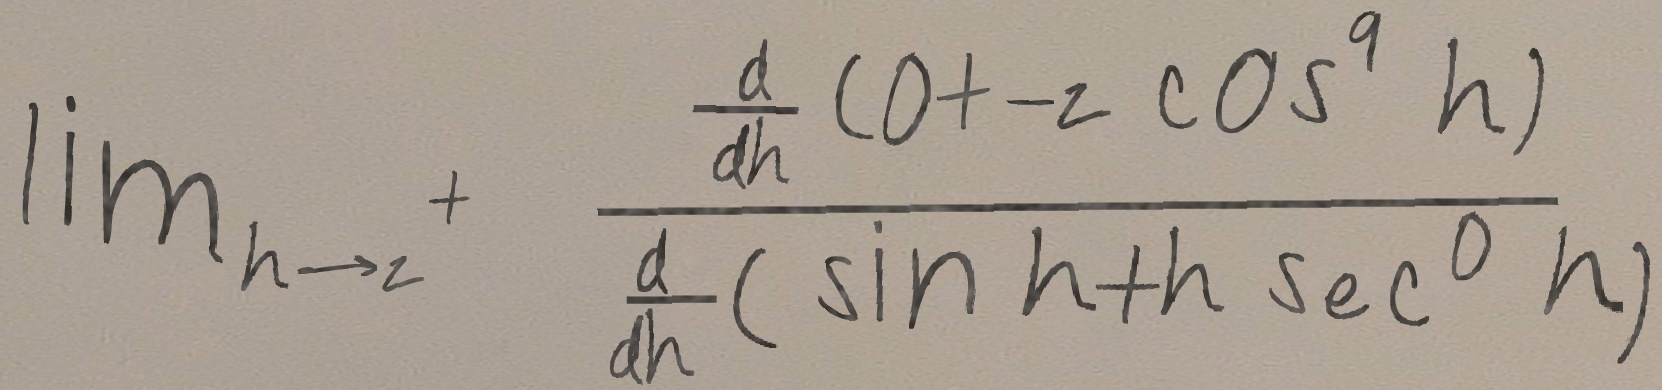 \lim_{h \to 2^+} \frac{\frac{d}{dh}(0+-2\cos^9 h)}{\frac{d}{dh}(\sin h+h\sec^0 h)}